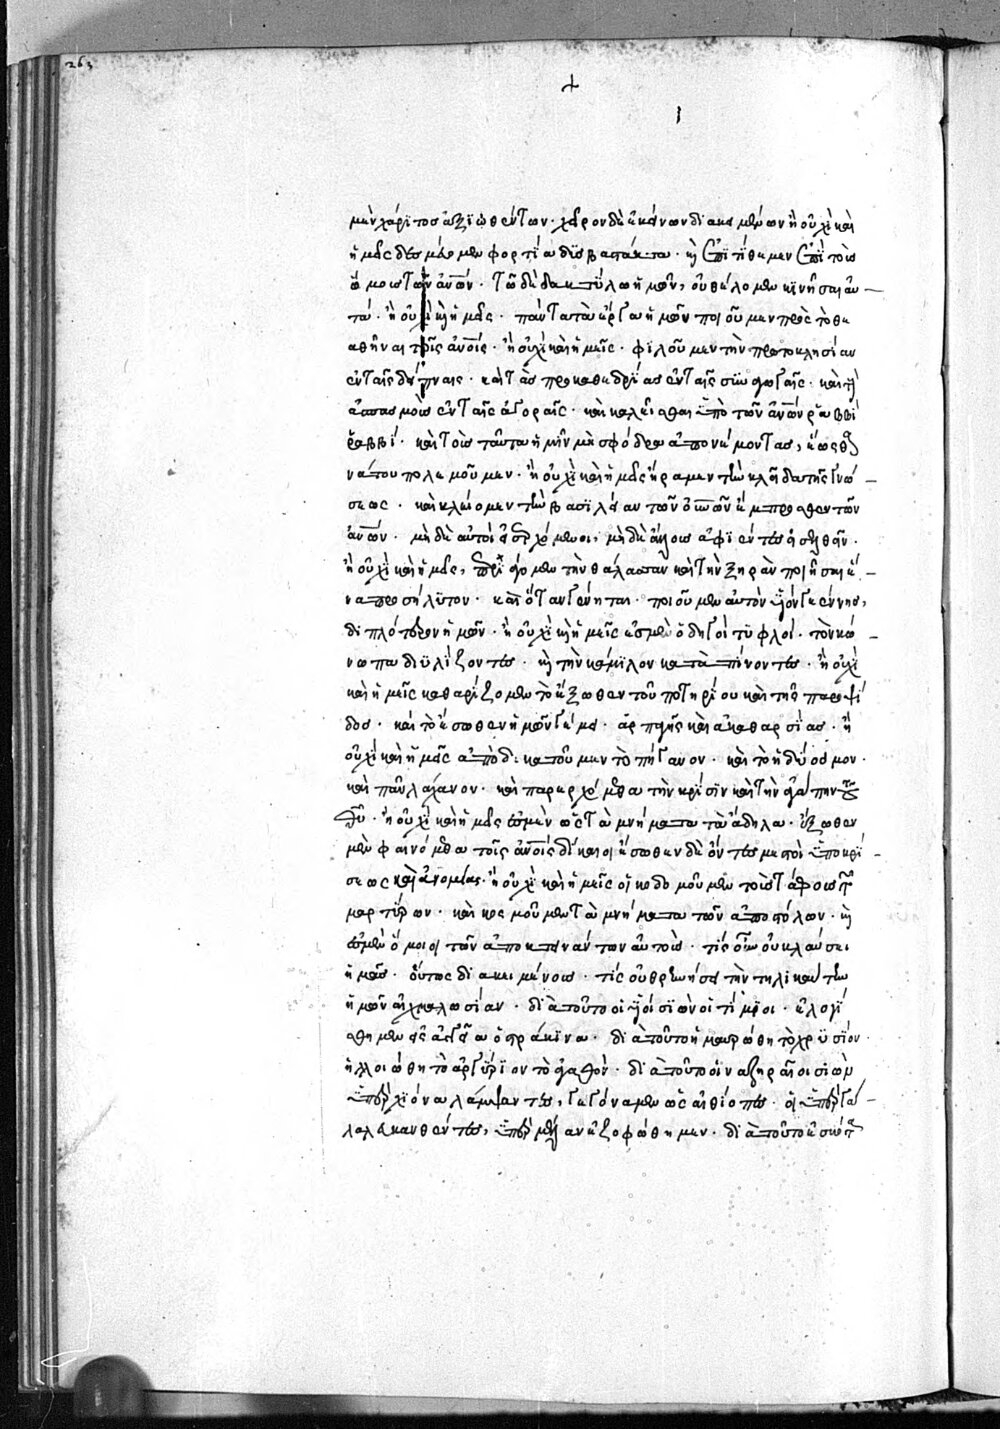 263
μὲν χάριτος ἀξιωθέντων · χεῖρον δὲ ἐκείνων διακείμενων ἢ οὐχὶ καὶ
ἡμεῖς δεσμεύομεν φορτία δυσβάστακτα · καὶ ἐπιτίθεμεν ἐπὶ τοὺς
ὤμους τῶν ἀνων · τῶ δὲ δακτύλω ἡμῶν, οὐ θέλομεν κινῆσαι αὐ
τά · ἢ οὐχὶ καὶ ἡμεῖς · πάντα τὰ ἔργα ἡμῶν ποιοῦμεν πρὸς τὸ θε
αθῆναι τοῖς ἀνοις · ἢ οὐχὶ καὶ ἡμεῖς · φιλοῦμεν τὴν πρωτοκλησίαν
ἐν τοῖς δείπνοις · καὶ τὰς προκαθεδρίας ἐν ταῖς συναγωγαῖς · καὶ τοὺς
ἀσπασμοὺς ἐν ταῖς ἀγοραῖς · καὶ καλεῖσθαι ὑπὸ τῶν ἀνων ῥαββί
ῥαββί · καὶ τοὺς ταῦτα ἡμῖν μὴ σφόδρα ἀπονέμοντας, ἕως θα
νάτου πολεμοῦμεν · ἢ οὐχὶ καὶ ἡμεῖς ἤραμεν τὴν κλεῖδα τῆς γνώ
σεως · καὶ κλείομεν τὴν βασιλείαν τῶν οὐνων ἔμπροσθεν τῶν
ἀνων · μὴ δὲ αὐτοὶ εἰσερχόμενοι, μὴ δὲ ἄλλους ἀφιέντες εἰσελθεῖν ·
ἢ οὐχὶ καὶ ἡμεῖς, περιάγομεν τὴν θάλασσαν καὶ τὴν ξηρὰν ποιῆσαι ἕ
να προσήλυτον · καὶ ὅταν γένηται · ποιοῦμεν αὐτὸν υἱὸν γεέννης,
διπλότερον ἡμῶν · ἢ οὐχὶ καὶ ἡμεῖς ἐσμὲν ὁδηγοὶ τυφλοί · τὸν κώ
νωπα διϋλίζοντες · καὶ τὴν κάμιλον καταπίνοντες · ἢ οὐχὶ
καὶ ἡμεῖς καθαρίζομεν τὸ ἔξωθεν τοῦ ποτηρίου καὶ τῆς παροψί
δος · καὶ τὸ ἔσωθεν ἡμῶν γέμει · ἁρπαγῆς καὶ ἀκαθαρσίας · ἢ
οὐχὶ καὶ ἡμεῖς ἀποδεκατοῦμεν τὸ πήγανον · καὶ τὸ ἡδύοσμον ·
καὶ πᾶν λάχανον · καὶ παρερχόμεθα τὴν κρίσιν καὶ τὴν ἀγάπην τοῦ
θυ · ἢ οὐχὶ καὶ ἡμεῖς ἐσμὲν ὡς τὰ μνήματα τὰ ἄδηλα · ἔξωθεν
μὲν φαινόμεθα τοῖς ἀνοις δίκαιοι ἔσωθεν δὲ ὄντες μεστοὶ ὑποκρί
σεως καὶ ἀνομίας · ἢ οὐχὶ καὶ ἡμεῖς οἰκοδομοῦμεν τοὺς τάφους τῶν
μαρτύρων · καὶ κοσμοῦμεν τὰ μνήματα τῶν ἀποστόλων · καὶ
ἐσμὲν ὅμοιοι τῶν ἀποκτεινάντων αὐτούς · τίς οὖν οὐ κλαύσει
ἡμᾶς · οὕτως διακειμένους · τίς οὐ θρηνήσει τὴν τηλικαύτην
ἡμῶν αἰχμαλωσίαν · διὰ τοῦτο οἱ υἱοὶ σιὼν οἱ τίμιοι · ἐλογί
σθημεν εἰς ἀγγεῖα ὀστράκινα · διὰ τοῦτο ἡμαυρώθη τὸ χρυσίον ·
ἠλλοιώθη τὸ ἀργύριον τὸ ἀγαθόν · διὰ τοῦτο οἱ ναζηραῖοι σιὼν
ὑπὲρ χιόνα λάμψαντες, γεγόναμεν ὡς αἰθίοπες · οἱ ὑπὲρ γά
λα λευκανθέντες, ὑπὲρ μέλαν ἐζοφώθημεν · διὰ τοῦτο